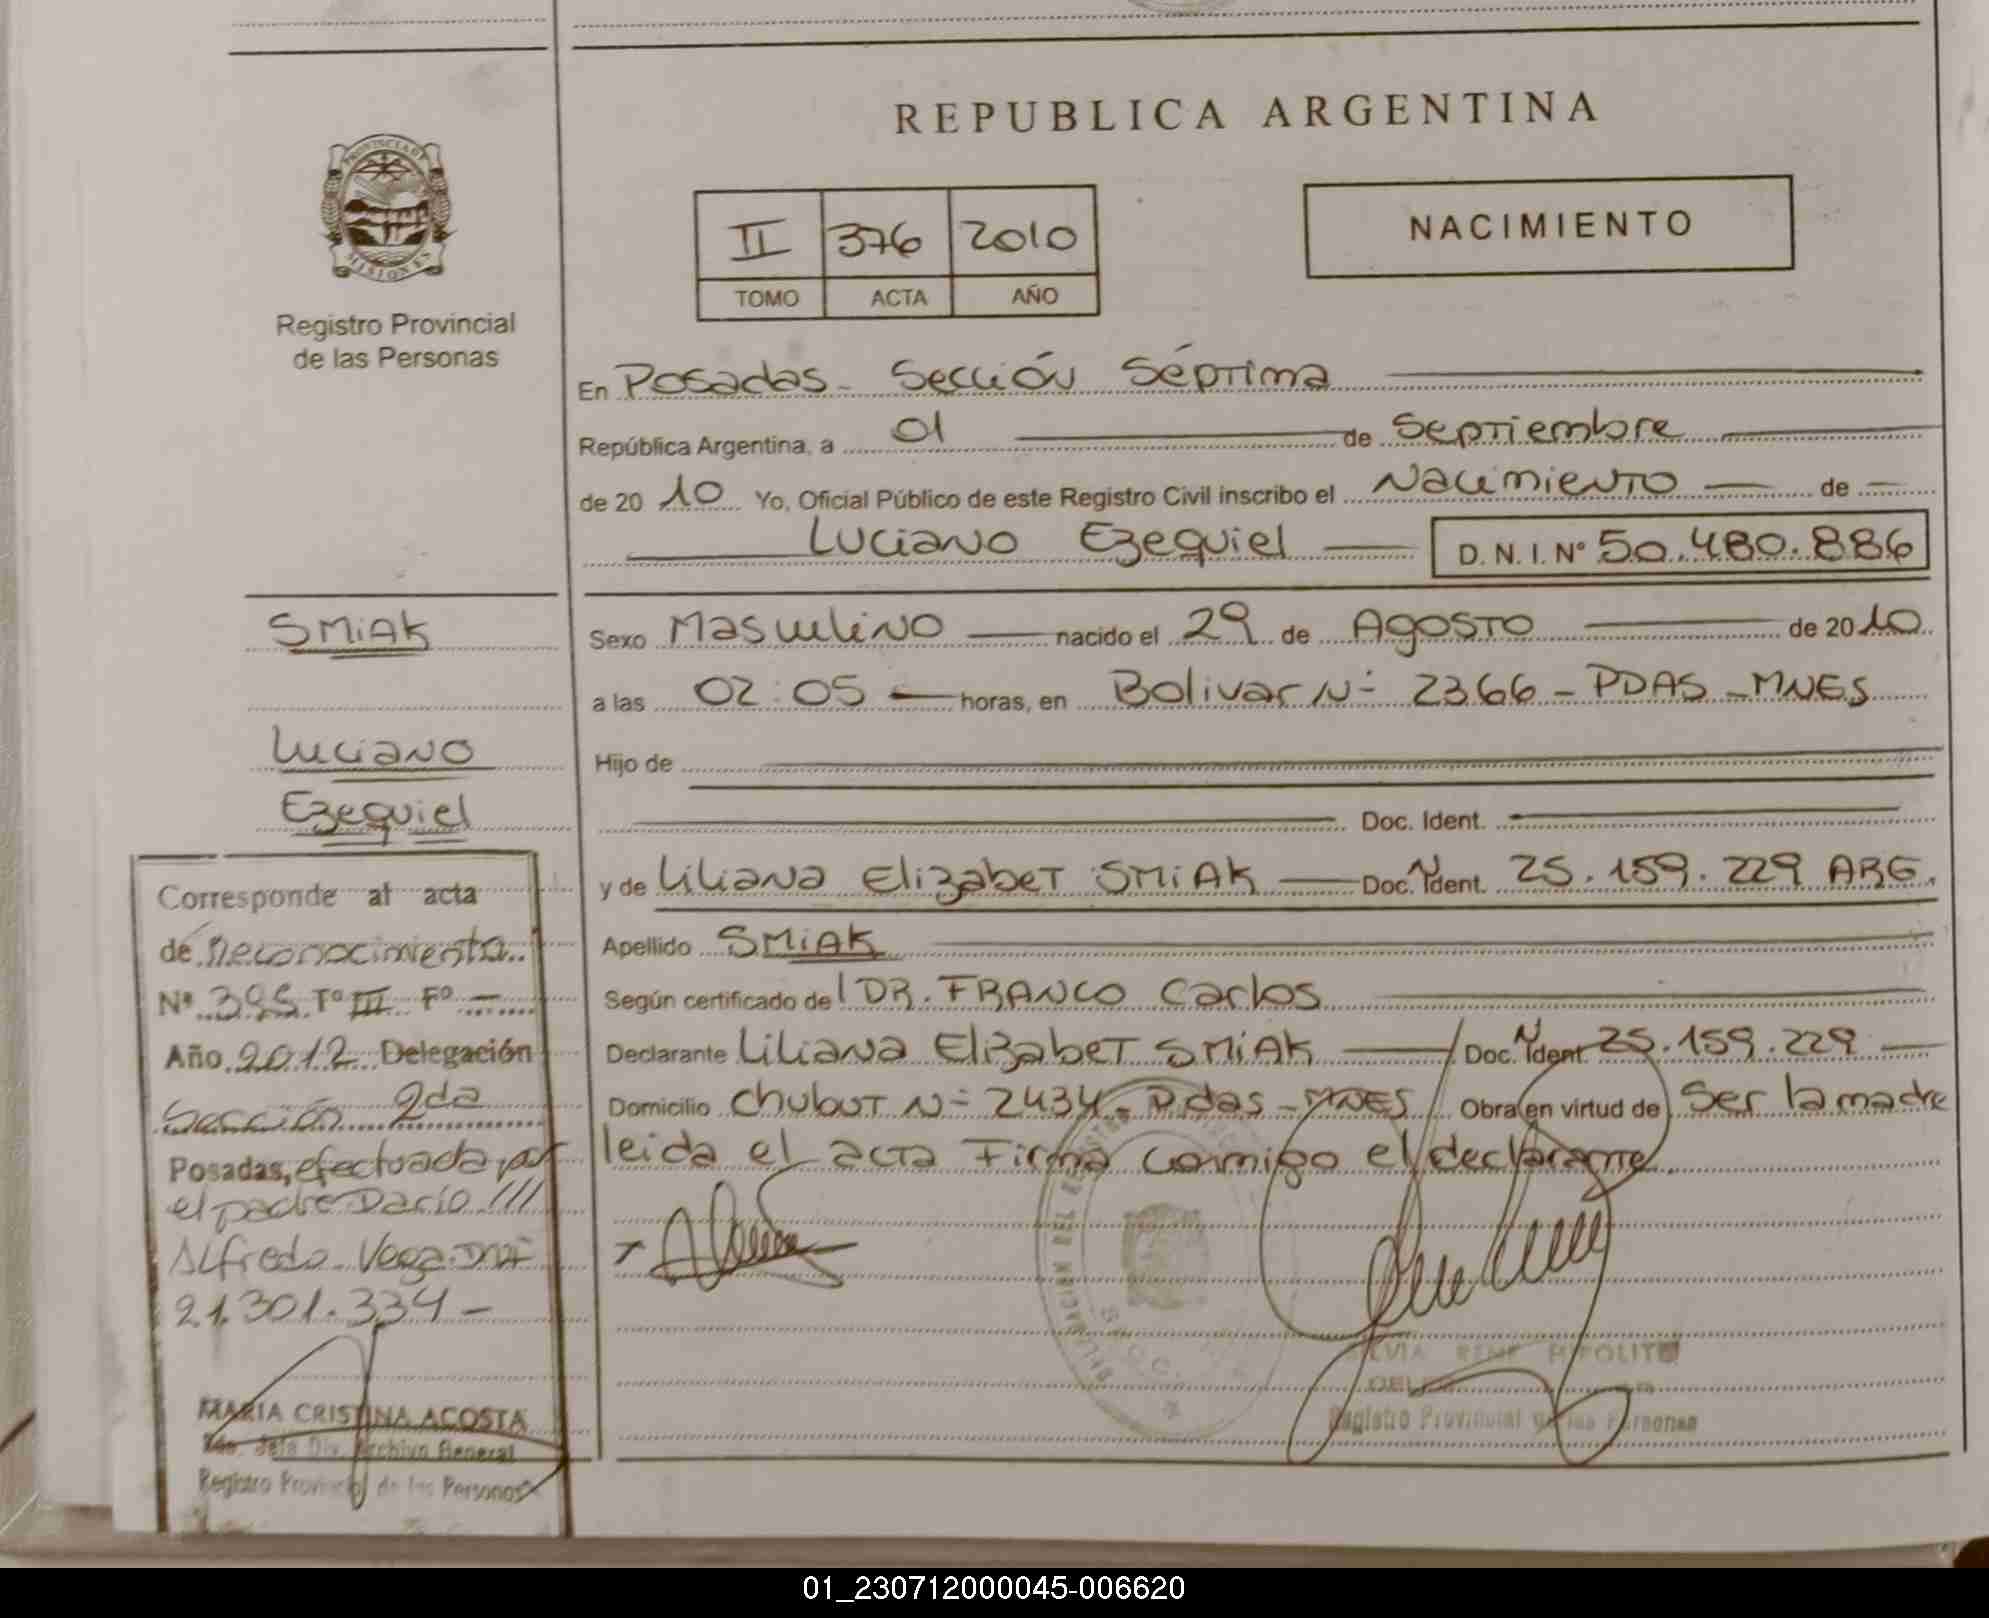 REPUBLICA ARGENTINA
PROVINCIA DE
MISIONES
Registro Provincial
de las Personas
II 376 2010
TOMO ACTA AÑO
NACIMIENTO
En Posadas - Sección Séptima
República Argentina, a 01 de Septiembre
de 20 10 Yo, Oficial Público de este Registro Civil inscribo el Nacimiento de
Luciano Ezequiel D. N. I. N° 50.480.886
Sexo Masculino nacido el 29 de Agosto de 20 10
a las 02:05 horas, en Bolivar Nº 2366 - PDAS - MNES
Hijo de
Doc. Ident.
y de Liliana Elizabet SMiAK Doc. Ident. N° 25.159.229 ARG.
Apellido SMiAK
Según certificado del DR. FRANCO Carlos
Declarante Liliana Elizabet SMiAK Doc. Ident. N° 25.159.229
Domicilio Chubut Nº 2434 - Pdas - MNES Obra en virtud de Ser la madre
leida el acta Firma conmigo el declarante
SMiAK
Luciano
Ezequiel
Corresponde al acta
de Reconocimiento
Nº 395 Tº III Fº -
Año 2012 Delegación
Sección 2da
Posadas, efectuada por
el padre Dario ///
Alfredo Vega DNI
21.301.334 -
MARIA CRISTINA ACOSTA
Jefa Div. Archivo General
Registro Provincial de las Personas
RENE HIPOLITO
Registro Provincial de las Personas
01_230712000045-006620